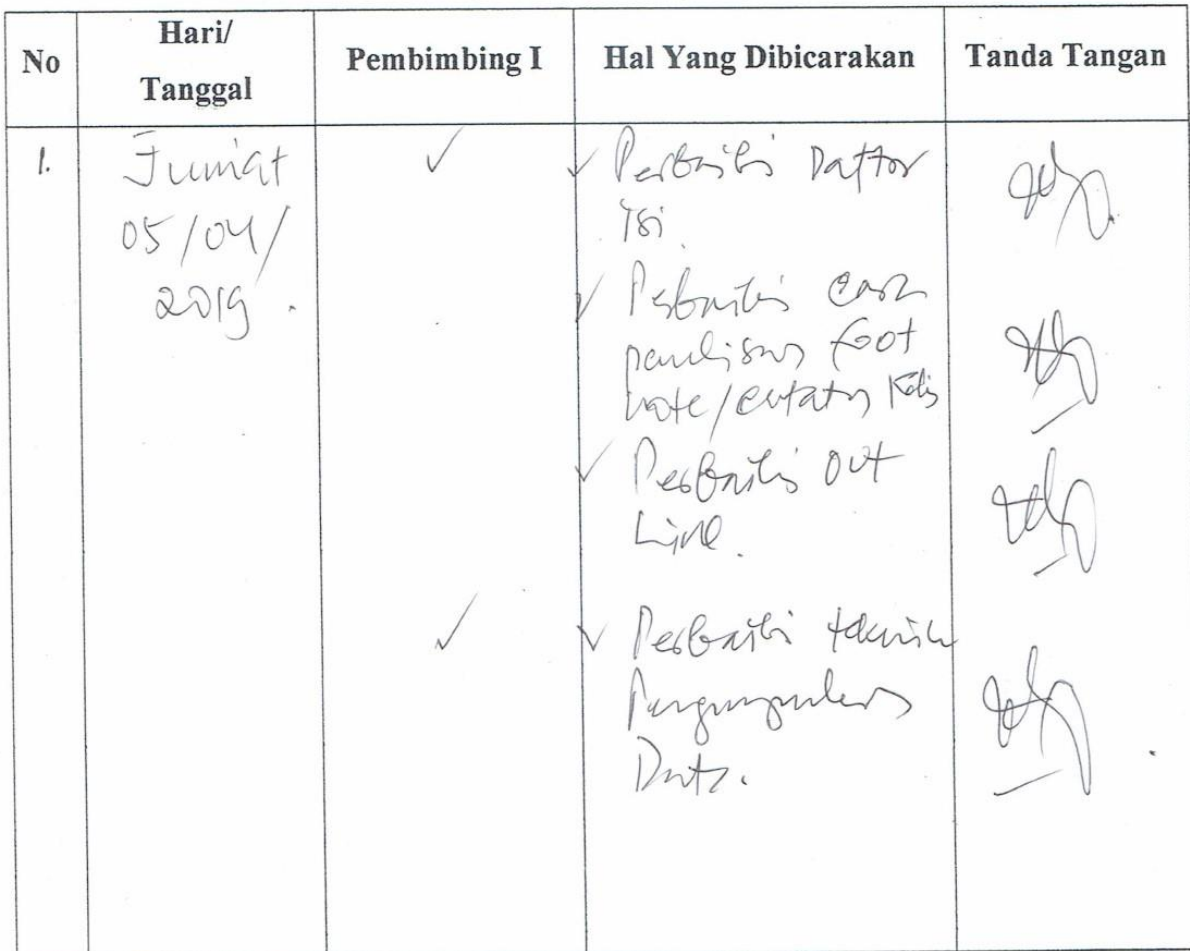 No
Hari/
Tanggal
Pembimbing I
Hal Yang Dibicarakan
Tanda Tangan
1.
Jumat
05/04/
2019.
✓
✓ Perbaiki Daftar
Isi.
✓ Perbaiki cara
penulisan foot
note/catatan kaki
✓ Perbaiki out
Line.
✓
✓ Perbaiki teknik
Pengumpulan
Data.